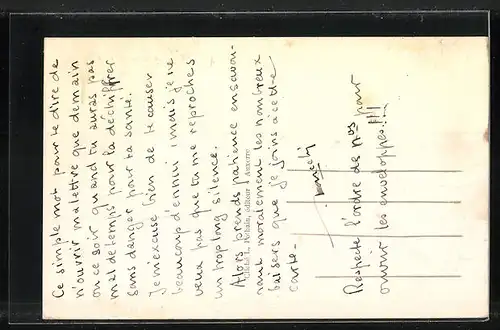 Ce simple mot pour te dire de
n'ouvrir ma lettre que demain
ou ce soir quand tu auras pas
mal de temps pour la déchiffrer
sans danger pour ta santé.
Je m'excuse bien de te causer
beaucoup d'ennui, mais je ne
veux pas que tu me reproches
un trop long silence.
Alors prends patience en savou-
rant moralement les nombreux
baisers que je joins à cette
carte -
Cliché L. éditeur Auxerre
Respecte l'ordre des nos pour
ouvrir les enveloppes!!!!